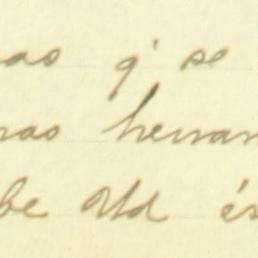 as q' se
nas herran
be Ud és